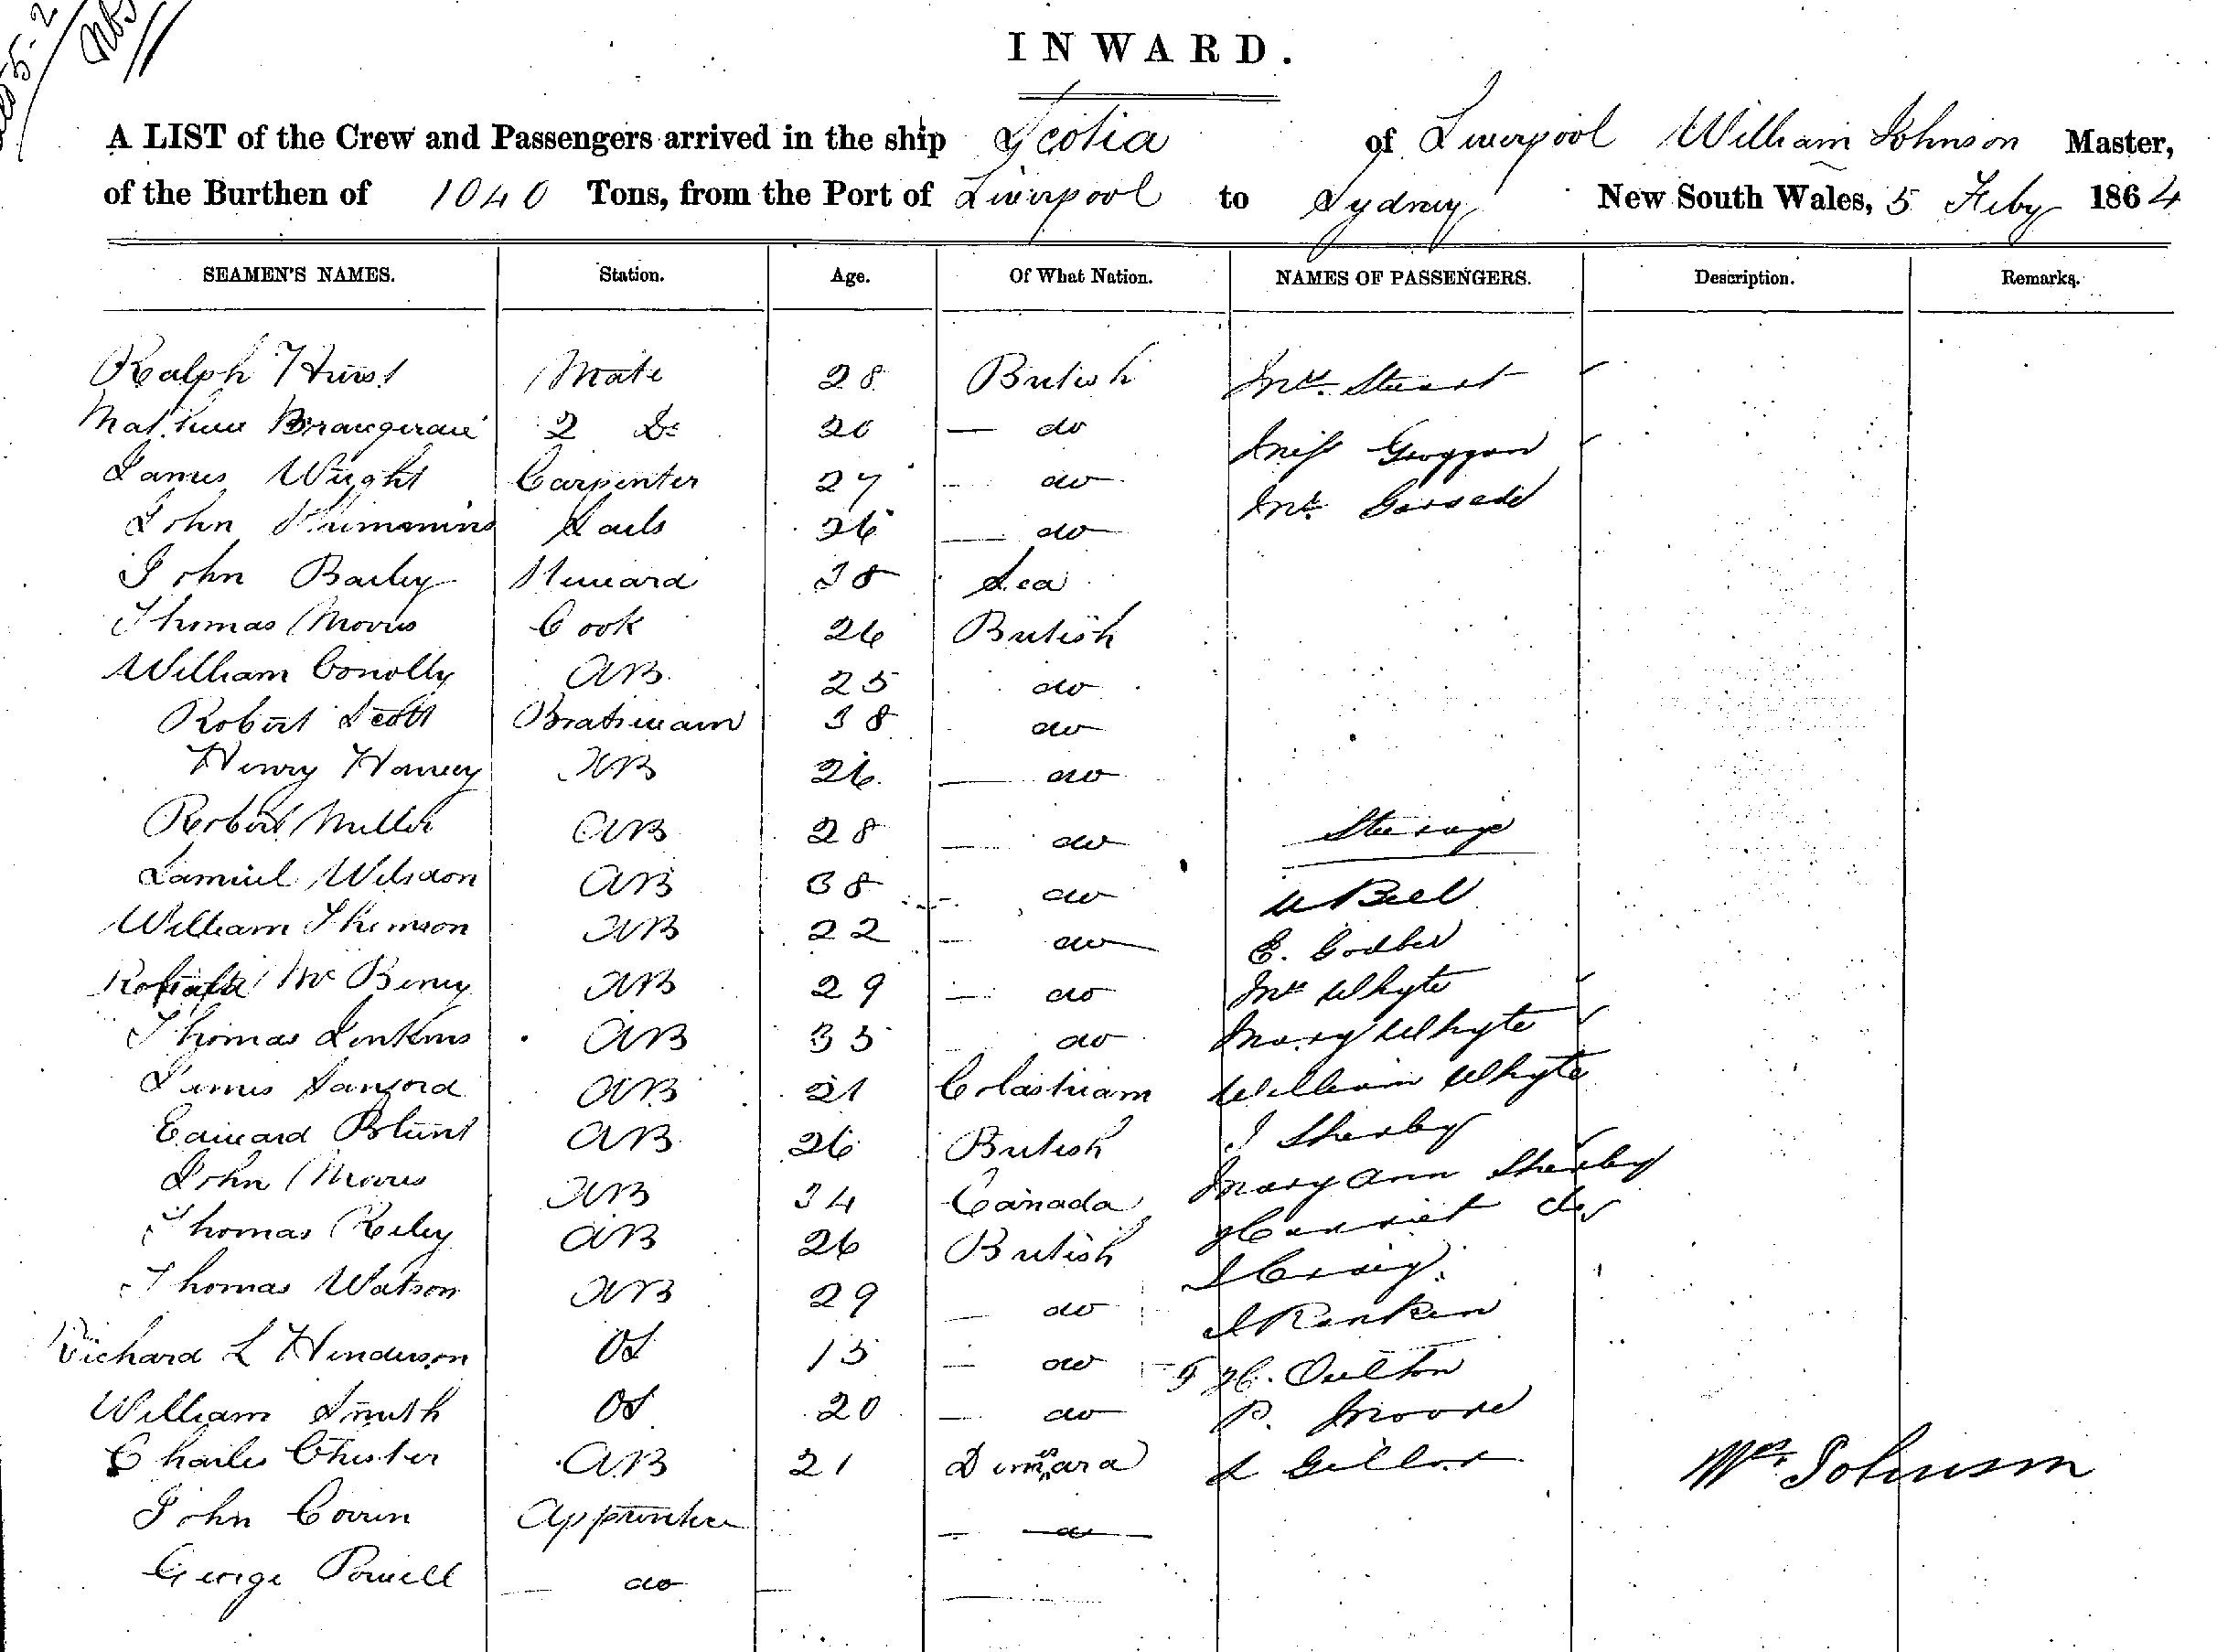 INWARD.
A LIST of the Crew and Passengers arrived in the ship Scotia of Liverpool William Johnson Master,
of the Burthen of 1040 Tons, from the Port of Liverpool to Sydney New South Wales, 5 Feby 1864
SEAMEN'S NAMES. Station. Age. Of What Nation. NAMES OF PASSENGERS. Description. Remarks.
Ralph Hurst Mate 28 British Mr. Stuart
Matthew 2 Do 20 do
Miss Groggan
James Wright Carpenter 27 do
John Sails 26 do Mr.
John Bailey Steward 38
Thomas Morris Cook 26 British
William Conolly AB 25 do
Robert Scott Boatswain 38 do
Henry Harvey AB 26 do
Robert Miller AB 28 do Steerage
Samuel Wilson AB 38 do W Bell
William Thomson AB 22 do E. Godber
Mc AB 29 do Mr Whyte
Thomas Jenkins AB 35 do Mary Whyte
James Sanford AB 21 William Whyte
Edward Blunt AB 26 British J Sherby
John Morris AB 34 Canada Mary Ann Sherby
Thomas Reley AB 26 British Harriet do
J Craig
Thomas Watson AB 29 do J Rankin
Richard L Henderson OS 15 do H. Oulton
William Smith OS 20 do P. Moore
Charles Chester AB 21 Demara J Gillor Wm Johnson
John Corrin Apprentice do
George Powell do